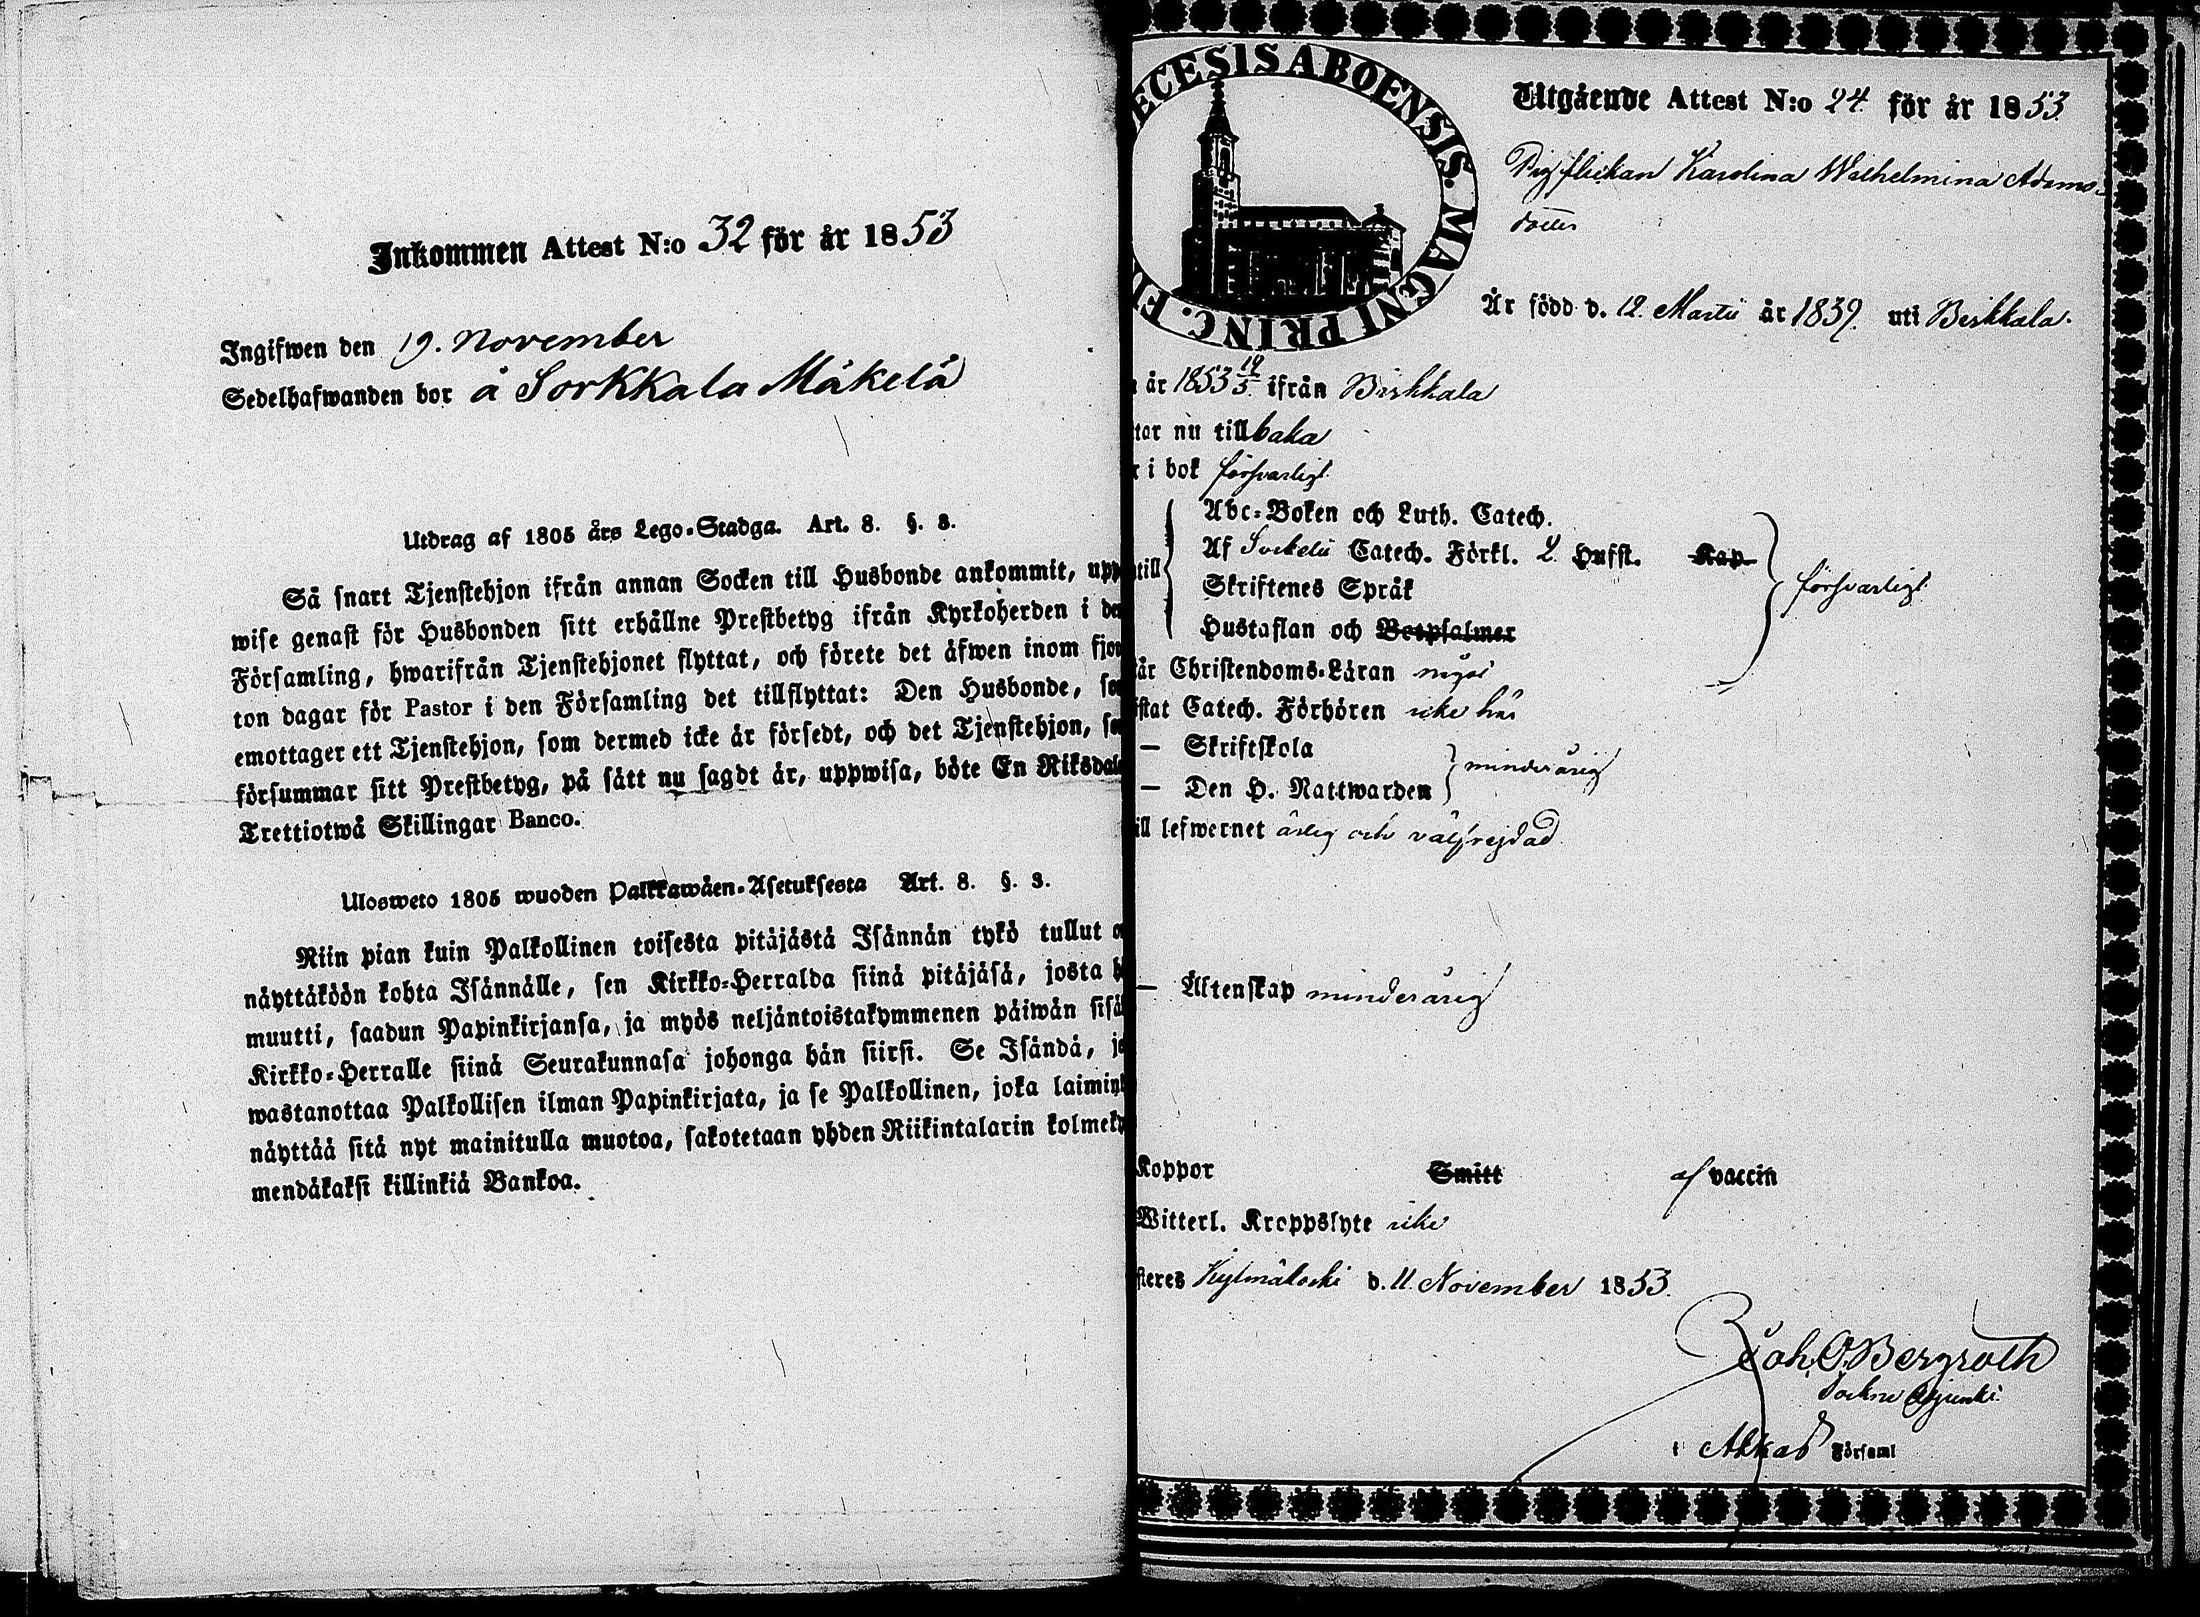 Inkommen Attest N:o 32 för år 1853
Ingifwen den 19. November
Sedelhafwanden bor å Sorkkala Mäkelä
Utdrag af 1805 års Lego-Stadga. Art. 8. §. 3.
Så snart Tjenstehjon ifrån annan Socken till Husbonde ankommit, upp
wise genast för Husbonden sitt erhållne Prestbetyg ifrån Kyrkoherden i de
Församling, hwarifrån Tjenstehjonet flyttat, och förete det äfwen inom fjor
ton dagar för Pastor i den Församling det tillflyttat: Den Husbonde, so
emottager ett Tjenstehjon, som dermed icke är försedt, och det Tjenstehjon, so
försummar sitt Prestbetyg, på sätt nu sagdt är, uppwisa, böte En Riksdale
Trettiotwå Skillingar Banco.
Ulosweto 1805 wuoden Palkkawäen-Asetuksesta Art. 8. §. 3.
Niin pian kuin Palkollinen toisesta pitäjästä Isännän tykö tullut o
näyttäköön kohta Isännälle, sen Kirkko-Herralda siinä pitäjäsä, josta h
muutti, saadun Papinkirjansa, ja myös neljäntoistakymmenen päiwän sisä
Kirkko-Herralle siinä Seurakunnasa johonga hän siirsi. Se Isändä, jo
wastanottaa Palkollisen ilman Papinkirjata, ja se Palkollinen, joka laiminl
näyttää sitä nyt mainitulla muotoa, sakotetaan yhden Riikintalarin kolmeky
mendäkaksi killinkiä Bankoa.
ECESIS ABOENSIS. MAGNI PRINC. FI
Utgående Attest N:o 24 för år 1853.
Pigflickan Karolina Wilhelmina Adams-
dotter
Är född d. 12. Martii år 1839. uti Birkkala.
år 1853 19/5. ifrån Birkkala
tar nu tillbaka
r i bok försvarligt
Abc-Boken och Luth. Catech.
till Af Svebelii Catech. Förkl. Hufst. Kap. försvarligt
Skriftenes Språk
Hustaflan och Botpsalmer
år Christendoms-Läran något
stat Catech. Förhören icke här
— Skriftskola
minderårig
— Den H. Nattwarden
ill lefwernet ärlig och välfrejdad
— Äktenskap minderårig
Koppor Smitt af vaccin
Witterl. Kroppslyte icke
steres Kylmäkoski d. 11. November 1853.
Joh. O. Bergroth
Sockne Adjunkt.
i Akkas Församl